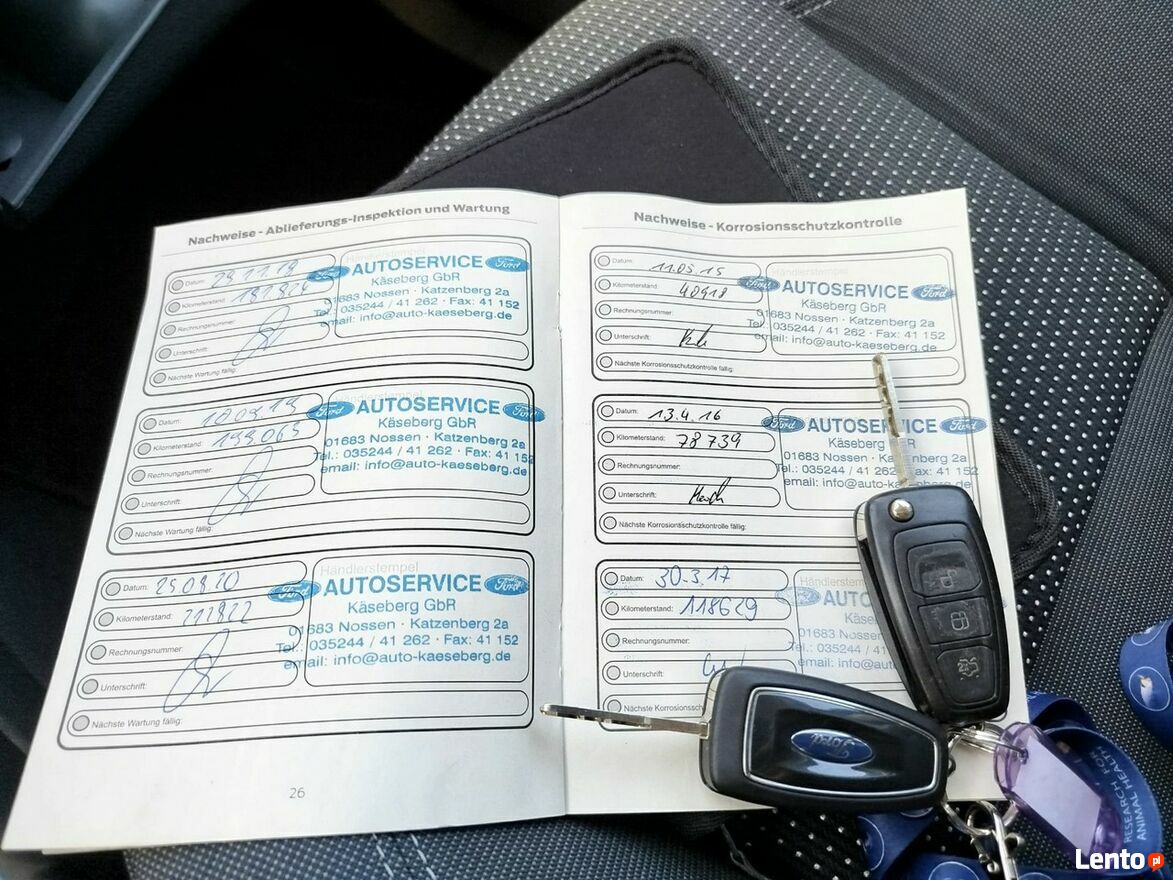 Nachweise - Ablieferungs-Inspektion und Wartung
Händlerstempel
Datum:
Ford AUTOSERVICE Ford
Käseberg GbR
Kilometerstand:
01683 Nossen · Katzenberg 2a
Tel.: 035244 / 41 262 · Fax: 41 152
Rechnungsnummer:
email: info@auto-kaeseberg.de
Unterschrift:
Nächste Wartung fällig:
Datum: 10 09 19
Ford AUTOSERVICE Ford
Käseberg GbR
Kilometerstand: 199065
01683 Nossen · Katzenberg 2a
Tel.: 035244 / 41 262 · Fax: 41 152
Rechnungsnummer:
email: info@auto-kaeseberg.de
Unterschrift:
Nächste Wartung fällig:
Händlerstempel
Datum: 25.08.20
Ford AUTOSERVICE Ford
Käseberg GbR
Kilometerstand: 212822
01683 Nossen · Katzenberg 2a
Tel.: 035244 / 41 262 · Fax: 41 152
Rechnungsnummer:
email: info@auto-kaeseberg.de
Unterschrift:
Nächste Wartung fällig:
26
Nachweise - Korrosionsschutzkontrolle
Datum: 11.05.15
Händlerstempel
Kilometerstand: 40918
Ford AUTOSERVICE Ford
Käseberg GbR
Rechnungsnummer:
01683 Nossen · Katzenberg 2a
Tel.: 035244 / 41 262 · Fax: 41 152
Unterschrift:
email: info@auto-kaeseberg.de
Nächste Korrosionsschutzkontrolle fällig:
Datum: 13.4.16
Ford AUTOSERVICE Ford
Kilometerstand: 78739
Käseberg GbR
01683 Nossen · Katzenberg 2a
Rechnungsnummer:
Tel.: 035244 / 41 262 41 152
Unterschrift:
email: info@auto-kaeseberg.de
Nächste Korrosionsschutzkontrolle fällig:
Datum: 30.3.17
Händlerstempel
Kilometerstand: 118629
Ford AUTO
Käse
01683 Nossen
Rechnungsnummer:
Tel.: 035244 / 41
Unterschrift:
email: info@
Nächste Korrosionssch
Ford
RESEARCH FOR
ANIMAL HEALTH
Lento.pl